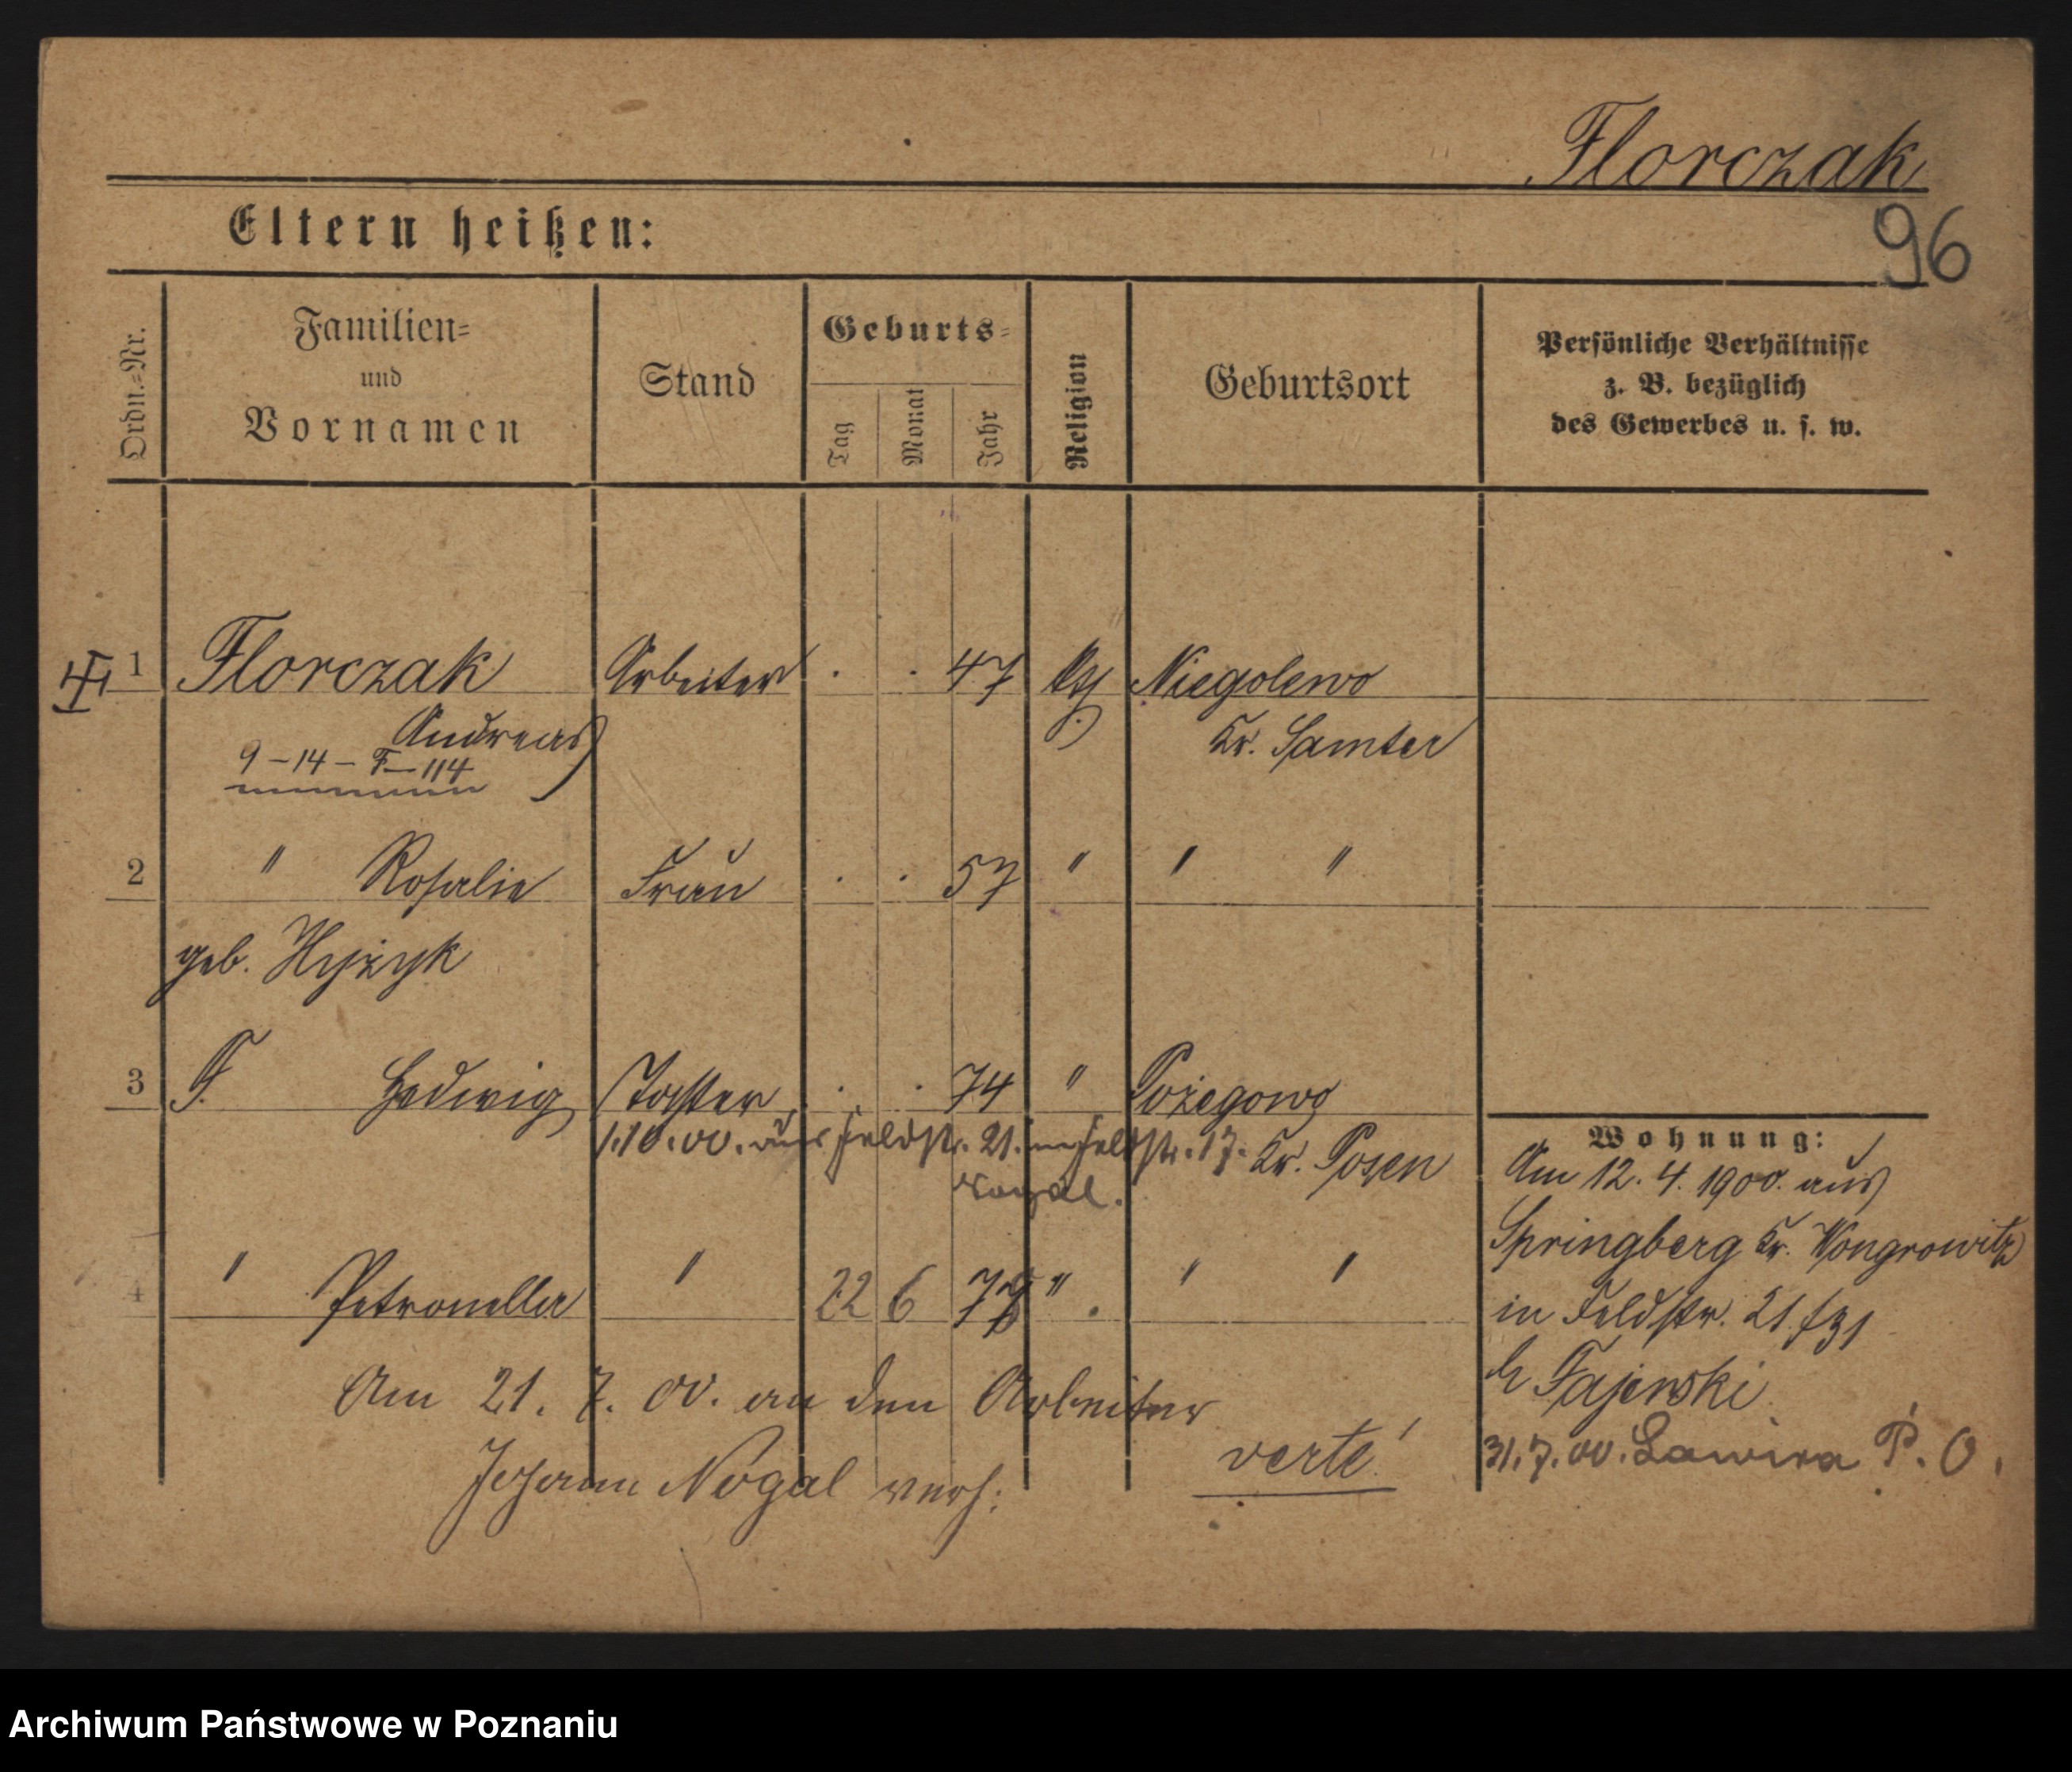 Florczak
96
Eltern heißen:
Ordn.=Nr.
Familien=
und
Vornamen
Stand
Geburts=
Tag
Monat
Jahr
Religion
Geburtsort
Persönliche Verhältnisse
z. B. bezüglich
des Gewerbes u. s. w.
1 Florczak Arbeiter . . 47 Niegolewo
Andreas Kr. Samter
9-14-F-114
2 " Rosalie Frau . . 57 " " "
geb. Hyżyk
3 F. Hedwig Tochter . . 74 " Pożegowo
1.10.00. aus Feldstr. 21. in Feldstr. 17. Kr. Posen
4 " Petronella " 22 6 " " "
Am 21. 7. 00. an den Arbeiter
Johann Nogal verh:
verte!
Wohnung:
Am 12. 4. 1900. aus
Springberg Kr. Wongrowitz
in Feldstr. 21
b Fajewski
31.7.00. Lawica P. O.
Archiwum Państwowe w Poznaniu